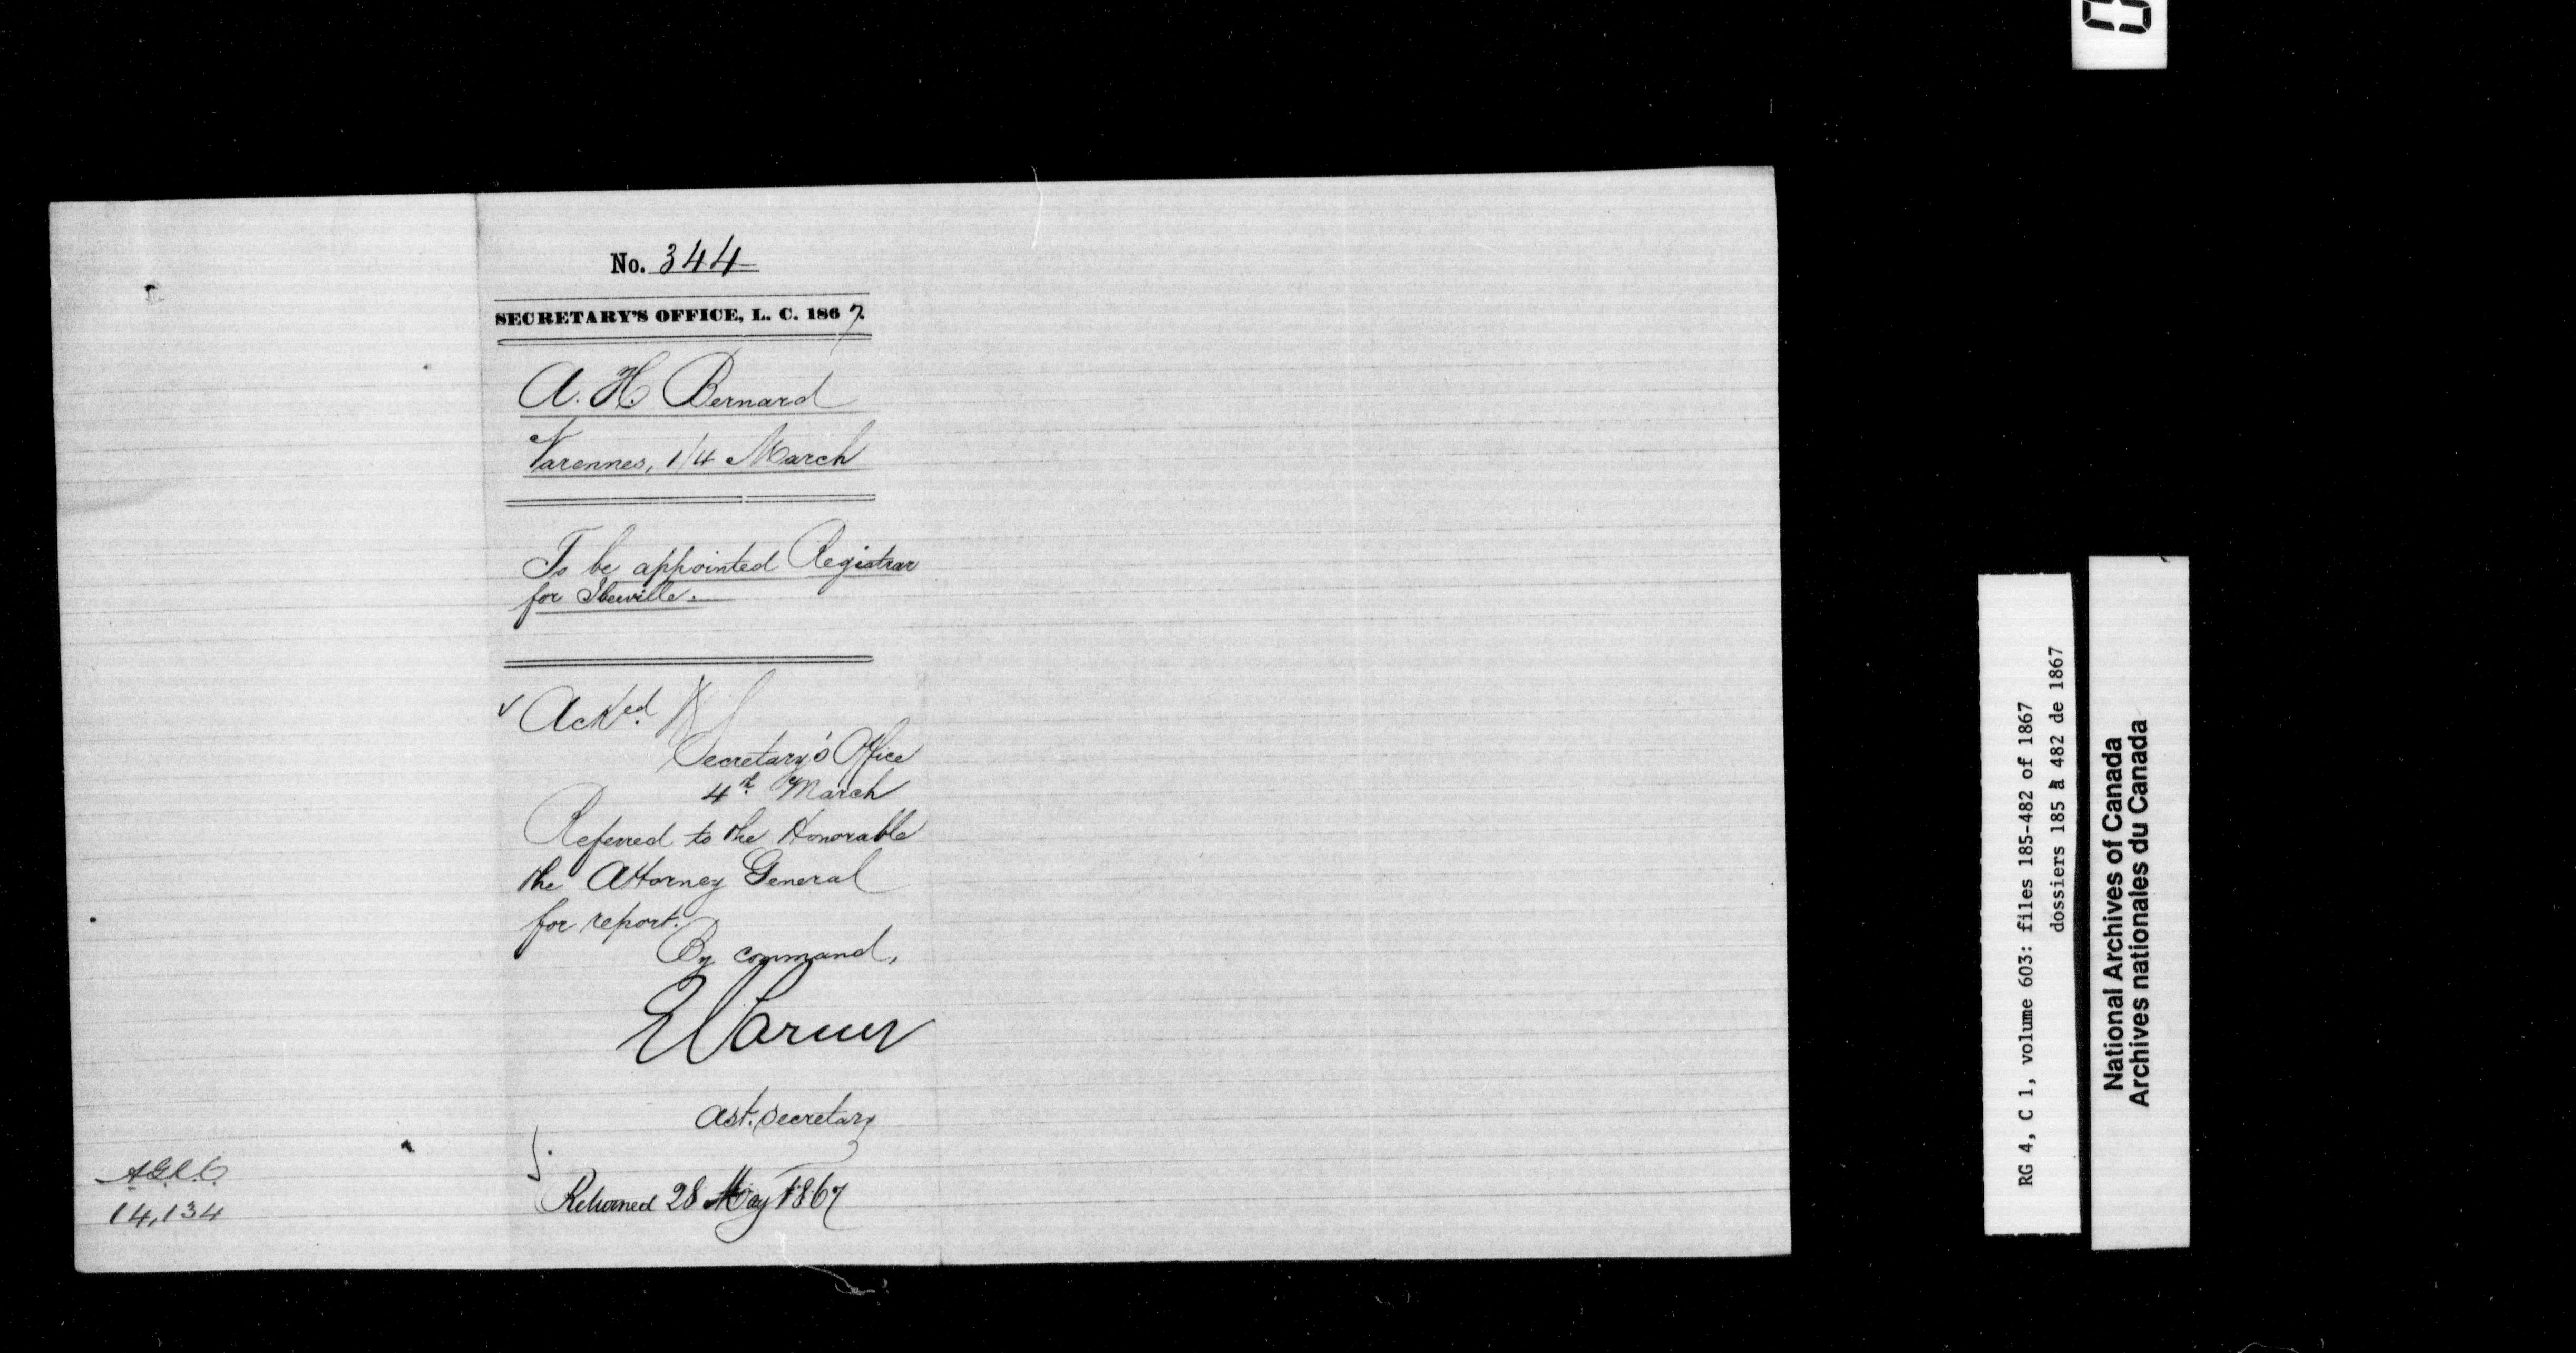 No. 344
SECRETARY'S OFFICE, L. C. 1867.
A. H. Bernard
Varennes, 1/4 March
To be appointed Registrar
for Iberville.
✓ Acked.
Secretary's Office
4th March
Referred to the Honorable
the Attorney General
for report.
By command,
Ast. Secretary
Returned 28 May 1867
A.G.L.C.
14,134
RG 4, C 1, volume 603: files 185-482 of 1867
dossiers 185 à 482 de 1867
National Archives of Canada
Archives nationales du Canada